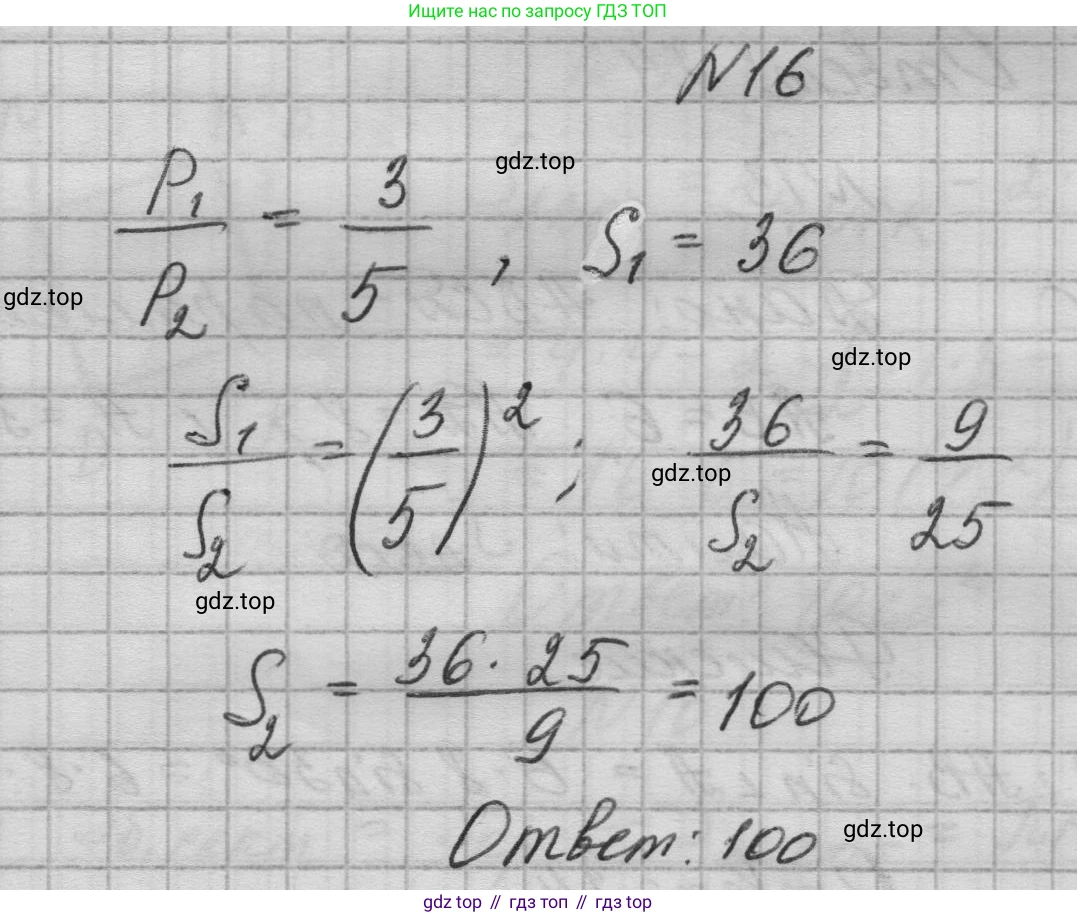 Ищите нас по запросу ГДЗ ТОП
N16
gdz.top
P₁/P₂ = 3/5 , S₁ = 36
gdz.top
gdz.top
S₁/S₂ = (3/5)² ; 36/S₂ = 9/25
gdz.top
gdz.top
S₂ = 36 · 25/9 = 100
Ответ: 100
gdz.top
gdz top // гдз топ // гдз top